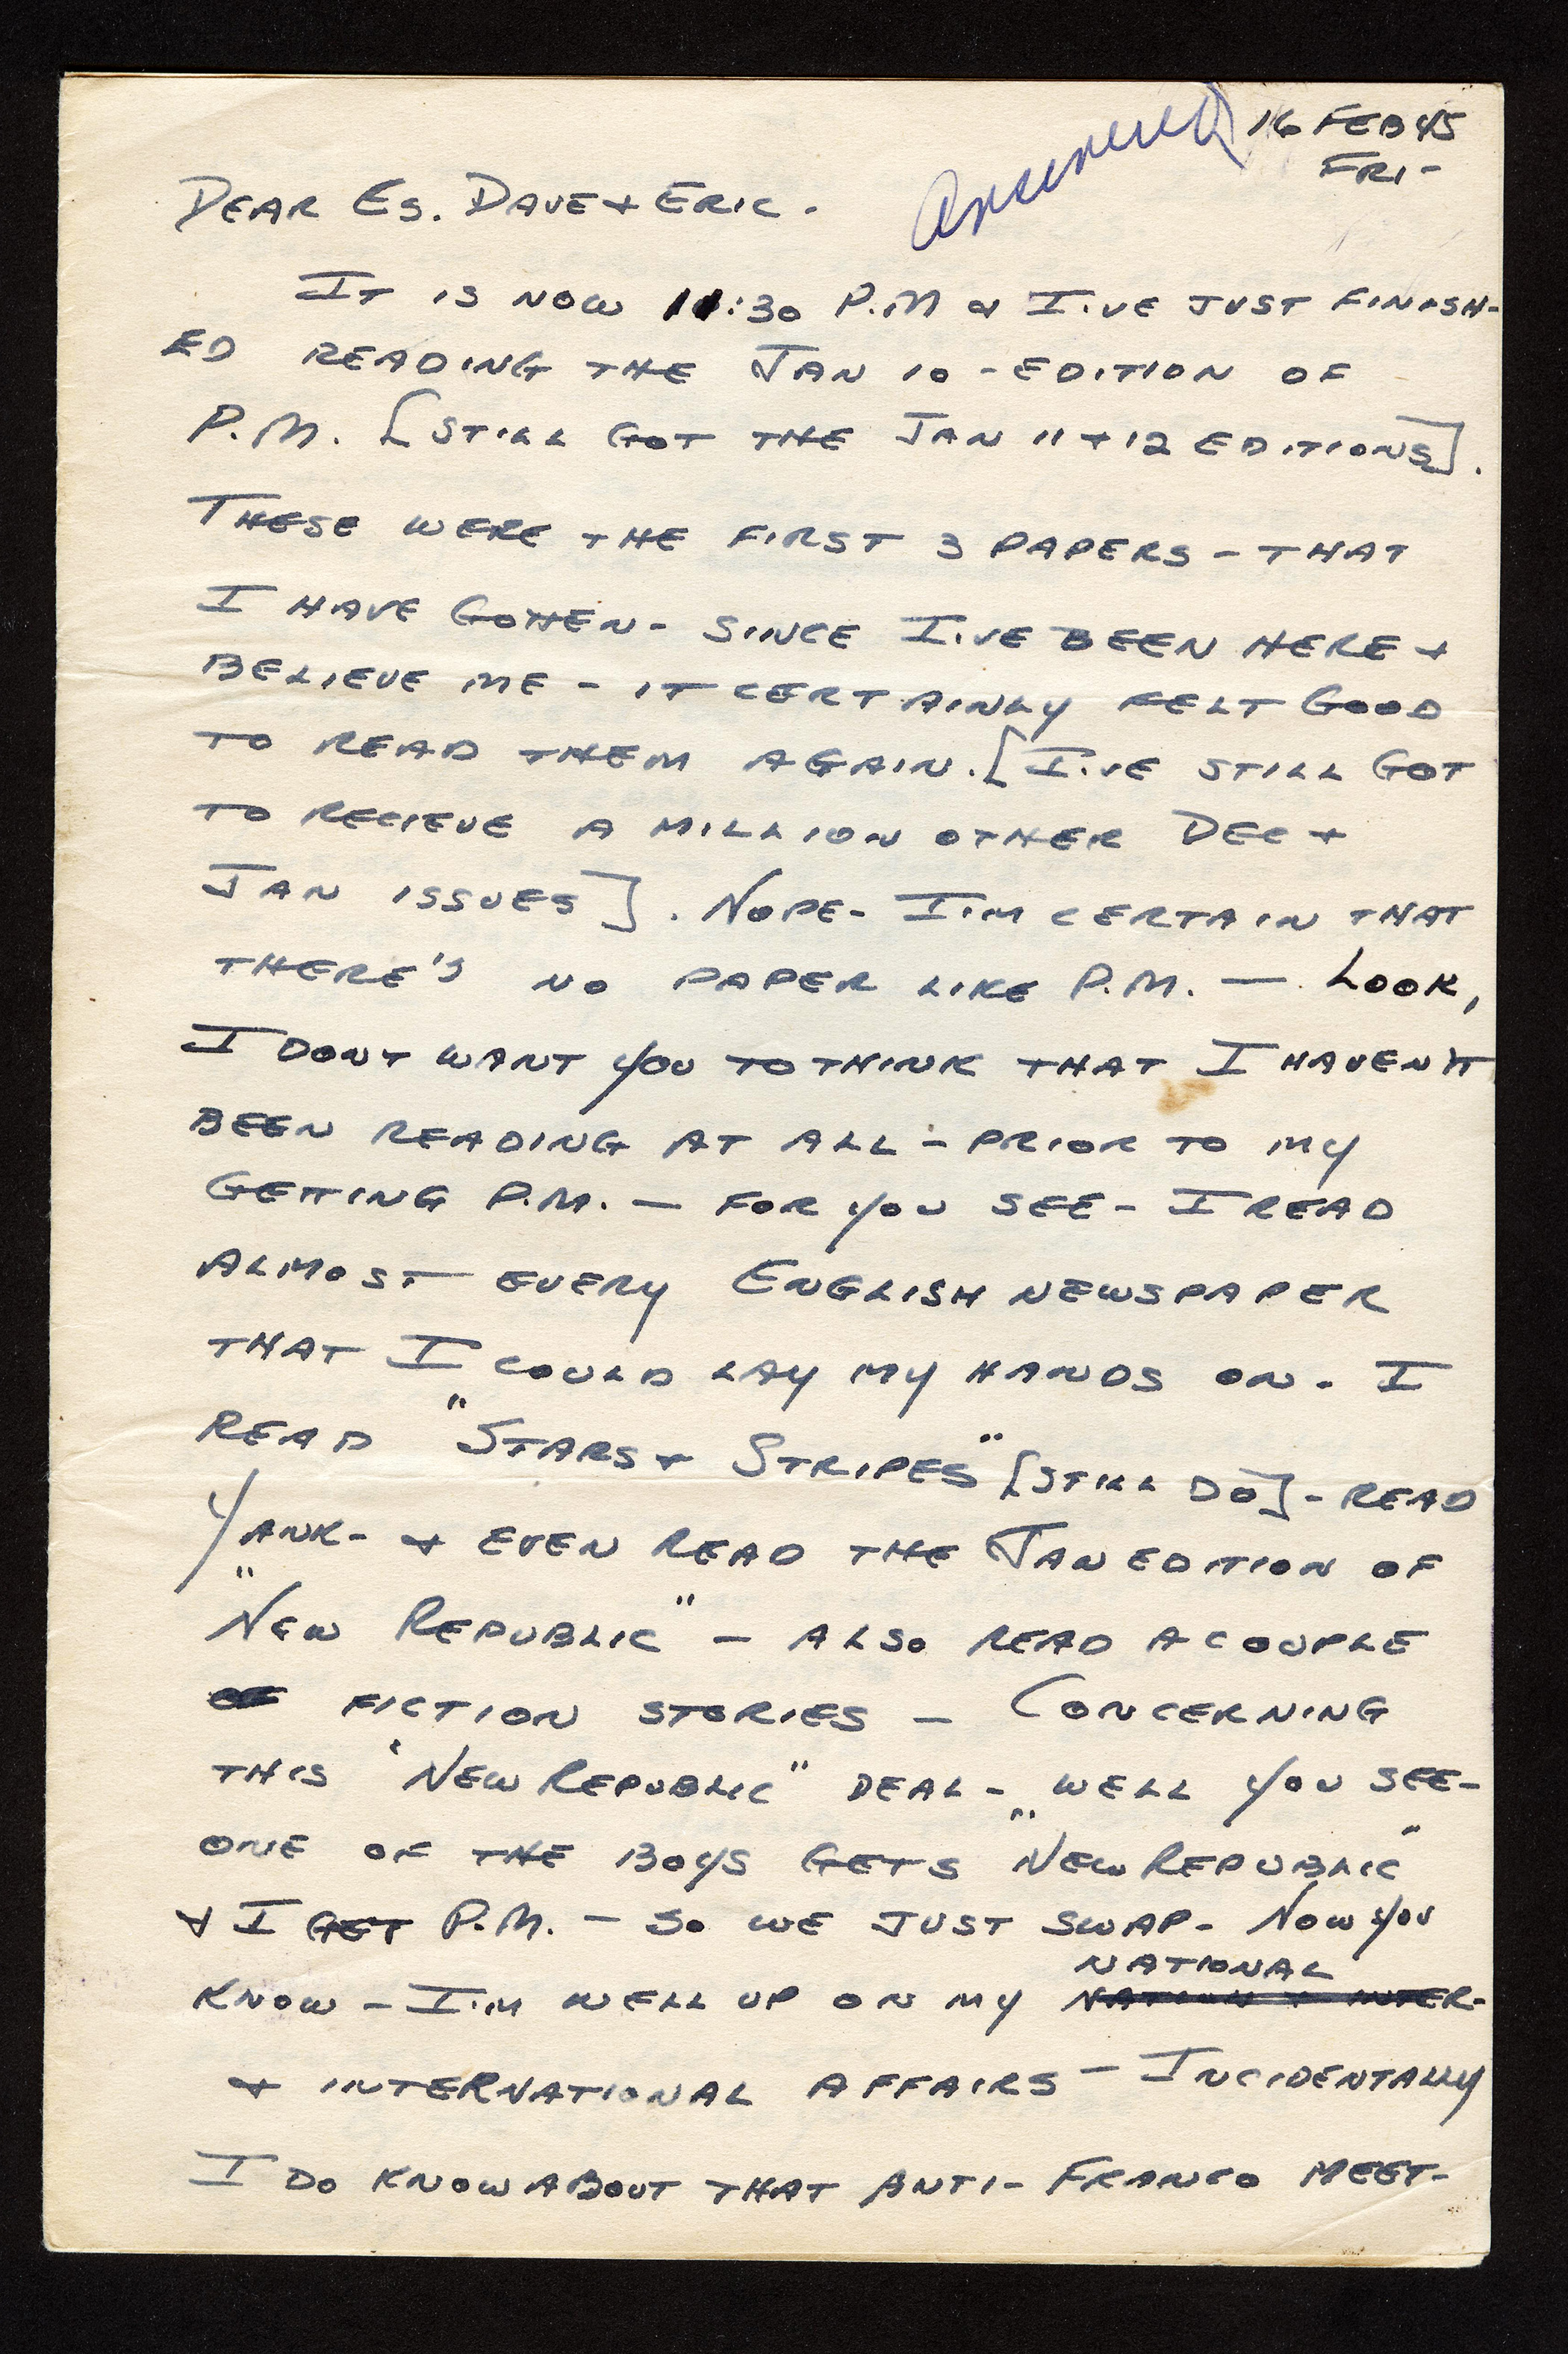 Answered
16 FEB 45
FRI-
DEAR ES. DAVE + ERIC.
IT IS NOW 11:30 P.M & I'VE JUST FINISH-
ED READING THE JAN 10 - EDITION OF
P.M. [STILL GOT THE JAN 11 + 12 EDITIONS].
THESE WERE THE FIRST 3 PAPERS - THAT
I HAVE GOTTEN - SINCE I'VE BEEN HERE +
BELIEVE ME - IT CERTAINLY FELT GOOD
TO READ THEM AGAIN. [I'VE STILL GOT
TO RECIEVE A MILLION OTHER DEC +
JAN ISSUES]. NOPE - I'M CERTAIN THAT
THERE'S NO PAPER LIKE P.M. — LOOK,
I DONT WANT YOU TO THINK THAT I HAVEN'T
BEEN READING AT ALL - PRIOR TO MY
GETTING P.M. — FOR YOU SEE - I READ
ALMOST EVERY ENGLISH NEWSPAPER
THAT I COULD LAY MY HANDS ON. I
READ "STARS + STRIPES" [STILL DO] - READ
YANK - + EVEN READ THE JAN EDITION OF
"NEW REPUBLIC" — ALSO READ A COUPLE
OF FICTION STORIES — CONCERNING
THIS 'NEW REPUBLIC" DEAL - WELL YOU SEE -
ONE OF THE BOYS GETS "NEW REPUBLIC"
+ I GET P.M. — SO WE JUST SWAP. NOW YOU
NATIONAL
KNOW - I'M WELL UP ON MY NATION + INTER-
+ INTERNATIONAL AFFAIRS - INCIDENTALLY
I DO KNOW ABOUT THAT ANTI-FRANCO MEET-